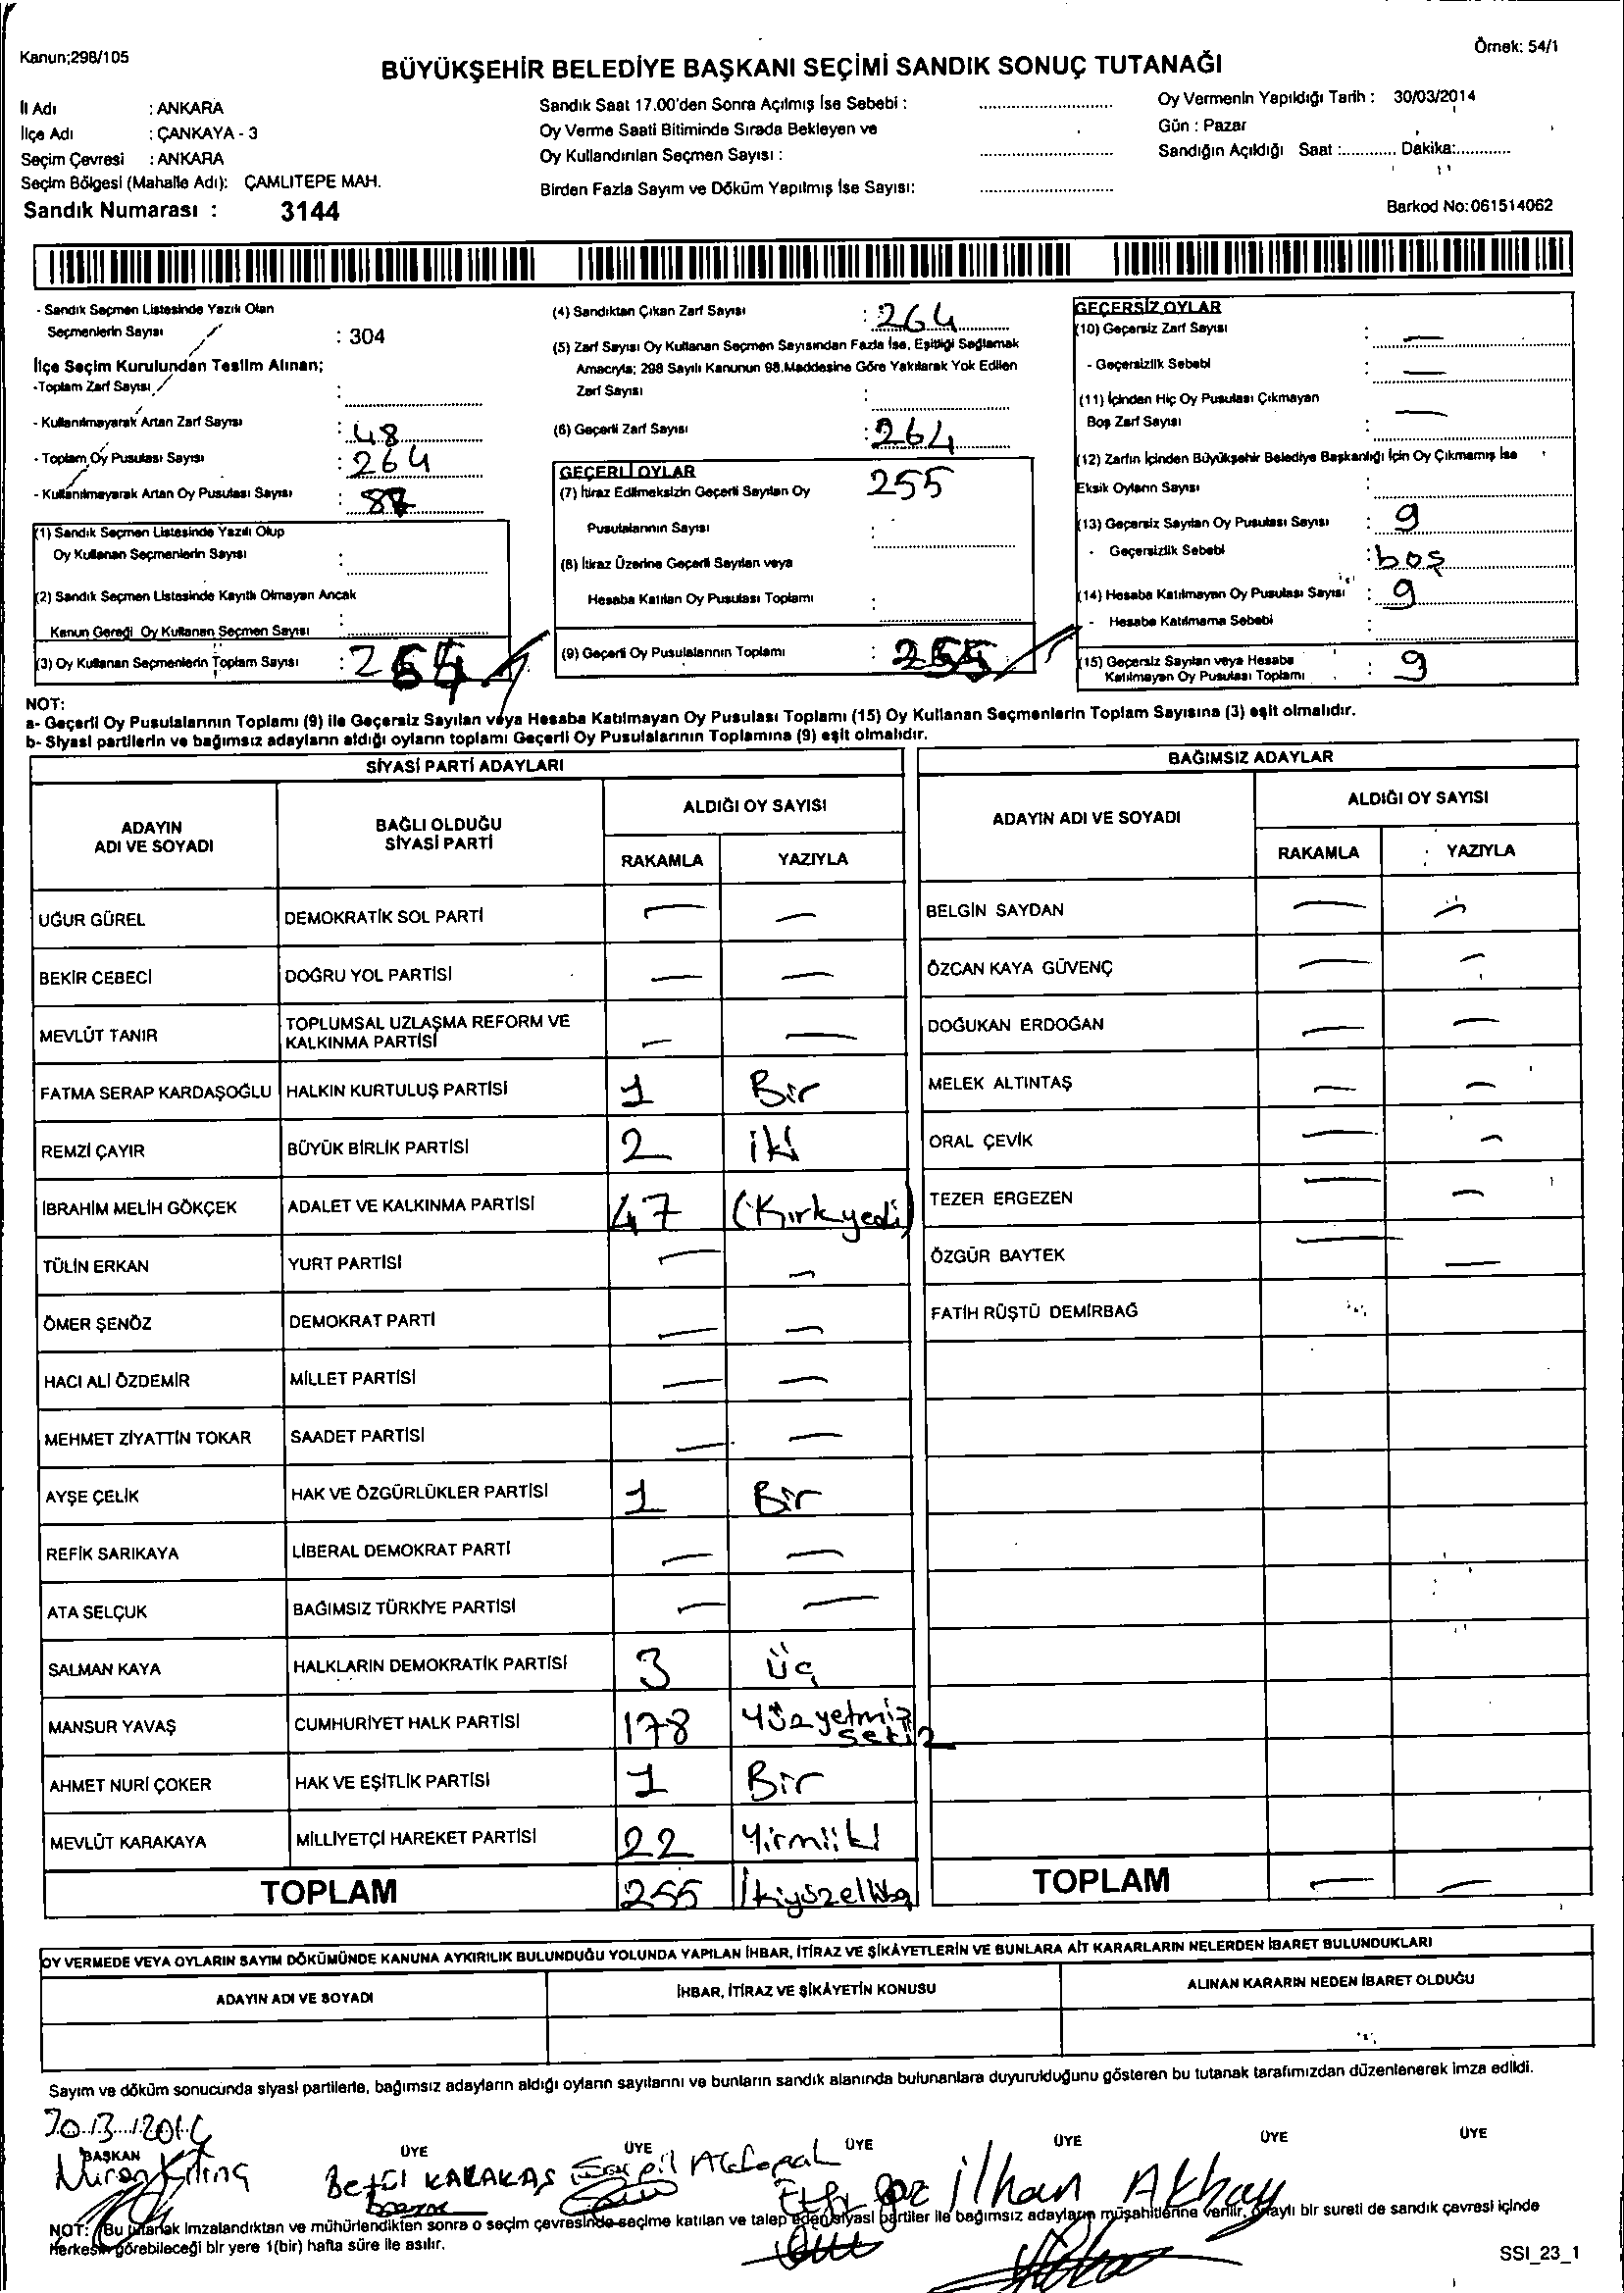 Kanun;298/105
Örnek: 54/1
BÜYÜKŞEHİR BELEDİYE BAŞKANI SEÇİMİ SANDIK SONUÇ TUTANAĞI
İl Adı : ANKARA
İlçe Adı : ÇANKAYA - 3
Seçim Çevresi : ANKARA
Seçim Bölgesi (Mahalle Adı): ÇAMLITEPE MAH.
Sandık Numarası : 3144
Sandık Saat 17.00'den Sonra Açılmış İse Sebebi :
Oy Verme Saati Bitiminde Sırada Bekleyen ve
Oy Kullandırılan Seçmen Sayısı :
Birden Fazla Sayım ve Döküm Yapılmış İse Sayısı:
Oy Vermenin Yapıldığı Tarih : 30/03/2014
Gün : Pazar
Sandığın Açıldığı Saat :............ Dakika:............
Barkod No:061514062
- Sandık Seçmen Listesinde Yazılı Olan
Seçmenlerin Sayısı : 304
İlçe Seçim Kurulundan Teslim Alınan;
-Toplam Zarf Sayısı :
- Kullanılmayarak Artan Zarf Sayısı : 48
- Toplam Oy Pusulası Sayısı : 264
- Kullanılmayarak Artan Oy Pusulası Sayısı :
(1) Sandık Seçmen Listesinde Yazılı Olup
Oy Kullanan Seçmenlerin Sayısı :
(2) Sandık Seçmen Listesinde Kayıtlı Olmayan Ancak
Kanun Gereği Oy Kullanan Seçmen Sayısı :
(3) Oy Kullanan Seçmenlerin Toplam Sayısı : 264
(4) Sandıktan Çıkan Zarf Sayısı : 264
(5) Zarf Sayısı Oy Kullanan Seçmen Sayısından Fazla İse, Eşitliği Sağlamak
Amacıyla; 298 Sayılı Kanunun 98.Maddesine Göre Yakılarak Yok Edilen
Zarf Sayısı :
(6) Geçerli Zarf Sayısı : 264
GEÇERLİ OYLAR
(7) İtiraz Edilmeksizin Geçerli Sayılan Oy 255
Pusulalarının Sayısı :
(8) İtiraz Üzerine Geçerli Sayılan veya
Hesaba Katılan Oy Pusulası Toplamı :
(9) Geçerli Oy Pusulalarının Toplamı : 255
GEÇERSİZ OYLAR
(10) Geçersiz Zarf Sayısı : —
- Geçersizlik Sebebi : —
(11) İçinden Hiç Oy Pusulası Çıkmayan
Boş Zarf Sayısı : —
(12) Zarfın İçinden Büyükşehir Belediye Başkanlığı İçin Oy Çıkmamış İse
Eksik Oyların Sayısı :
(13) Geçersiz Sayılan Oy Pusulası Sayısı : 9
- Geçersizlik Sebebi : boş
(14) Hesaba Katılmayan Oy Pusulası Sayısı : 9
- Hesaba Katılmama Sebebi :
(15) Geçersiz Sayılan veya Hesaba
Katılmayan Oy Pusulası Toplamı : 9
NOT:
a- Geçerli Oy Pusulalarının Toplamı (9) ile Geçersiz Sayılan veya Hesaba Katılmayan Oy Pusulası Toplamı (15) Oy Kullanan Seçmenlerin Toplam Sayısına (3) eşit olmalıdır.
b- Siyasi partilerin ve bağımsız adayların aldığı oyların toplamı Geçerli Oy Pusulalarının Toplamına (9) eşit olmalıdır.
SİYASİ PARTİ ADAYLARI
ADAYIN ADI VE SOYADI
BAĞLI OLDUĞU SİYASİ PARTİ
ALDIĞI OY SAYISI
RAKAMLA YAZIYLA
UĞUR GÜREL DEMOKRATİK SOL PARTİ — —
BEKİR CEBECİ DOĞRU YOL PARTİSİ — —
MEVLÜT TANIR TOPLUMSAL UZLAŞMA REFORM VE KALKINMA PARTİSİ — —
FATMA SERAP KARDAŞOĞLU HALKIN KURTULUŞ PARTİSİ 1 Bir
REMZİ ÇAYIR BÜYÜK BİRLİK PARTİSİ 2 iki
İBRAHİM MELİH GÖKÇEK ADALET VE KALKINMA PARTİSİ 47 (Kırkyedi)
TÜLİN ERKAN YURT PARTİSİ — —
ÖMER ŞENÖZ DEMOKRAT PARTİ — —
HACI ALİ ÖZDEMİR MİLLET PARTİSİ — —
MEHMET ZİYATTİN TOKAR SAADET PARTİSİ — —
AYŞE ÇELİK HAK VE ÖZGÜRLÜKLER PARTİSİ 1 Bir
REFİK SARIKAYA LİBERAL DEMOKRAT PARTİ — —
ATA SELÇUK BAĞIMSIZ TÜRKİYE PARTİSİ — —
SALMAN KAYA HALKLARIN DEMOKRATİK PARTİSİ 3 üç
MANSUR YAVAŞ CUMHURİYET HALK PARTİSİ 178 Yüzyetmiş sekiz
AHMET NURİ ÇOKER HAK VE EŞİTLİK PARTİSİ 1 Bir
MEVLÜT KARAKAYA MİLLİYETÇİ HAREKET PARTİSİ 22 Yirmiiki
TOPLAM 255 İkiyüzellibeş
BAĞIMSIZ ADAYLAR
ADAYIN ADI VE SOYADI
ALDIĞI OY SAYISI
RAKAMLA YAZIYLA
BELGİN SAYDAN — —
ÖZCAN KAYA GÜVENÇ — —
DOĞUKAN ERDOĞAN — —
MELEK ALTINTAŞ — —
ORAL ÇEVİK — —
TEZER ERGEZEN — —
ÖZGÜR BAYTEK — —
FATİH RÜŞTÜ DEMİRBAĞ
TOPLAM — —
OY VERMEDE VEYA OYLARIN SAYIM DÖKÜMÜNDE KANUNA AYKIRILIK BULUNDUĞU YOLUNDA YAPILAN İHBAR, İTİRAZ VE ŞİKÂYETLERİN VE BUNLARA AİT KARARLARIN NELERDEN İBARET BULUNDUKLARI
ADAYIN ADI VE SOYADI
İHBAR, İTİRAZ VE ŞİKÂYETİN KONUSU
ALINAN KARARIN NEDEN İBARET OLDUĞU
Sayım ve döküm sonucunda siyasi partilerle, bağımsız adayların aldığı oyların sayılarını ve bunların sandık alanında bulunanlara duyurulduğunu gösteren bu tutanak tarafımızdan düzenlenerek imza edildi.
30/3/2014
BAŞKAN ÜYE ÜYE ÜYE ÜYE ÜYE ÜYE
KARAKAŞ İlhan Akbay
NOT: Bu tutanak imzalandıktan ve mühürlendikten sonra o seçim çevresinde seçime katılan ve talep eden siyasi partiler ile bağımsız adayların müşahitlerine verilir. Onaylı bir sureti de sandık çevresi içinde
herkesin görebileceği bir yere 1(bir) hafta süre ile asılır.
SSI_23_1